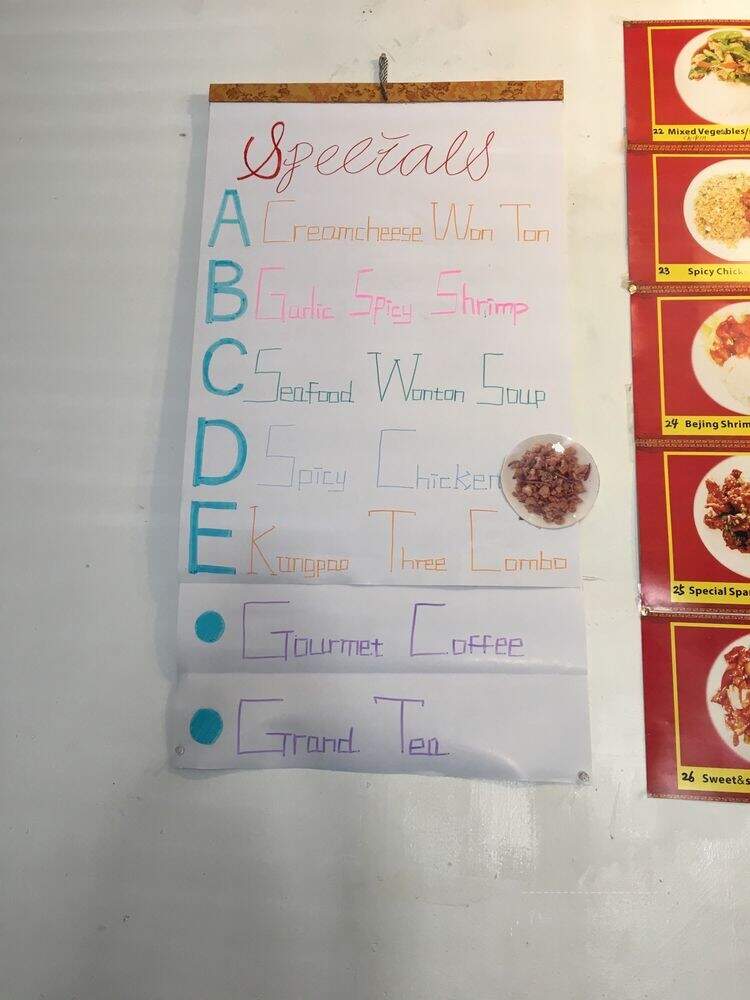 Specials
A Creamcheese Won Ton
B Garlic Spicy Shrimp
C Seafood Wonton Soup
D Spicy Chicken
E Kungpao Three Combo
Gourmet Coffee
Grand Tea
22 Mixed Vegetables/
23 Spicy Chick
24 Bejing Shrim
25 Special Spa
26 Sweet&s